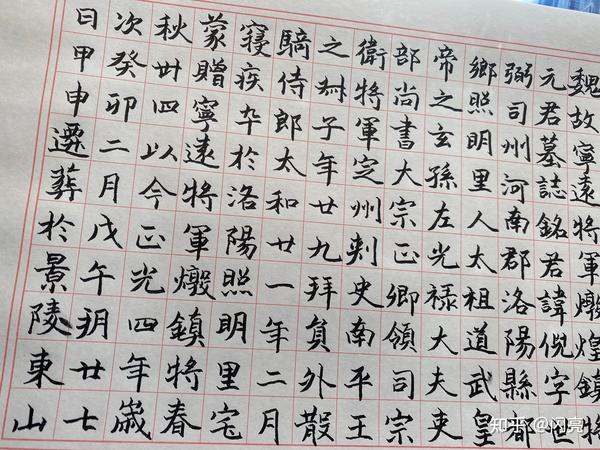 魏故寧遠將軍燉煌鎮將
元君墓誌銘君諱倪字世
弼司州河南郡洛陽縣都
鄉照明里人太祖道武皇
帝之玄孫左光祿大夫吏
部尚書大宗正卿領司宗
衛將軍定州刾史南平王
之子年廿九拜負外散
騎侍郎太和廿一年二月
寢疾卒於洛陽照明里宅
蒙贈寧遠將軍燉鎮將春
秋卅四以今正光四年歲
次癸卯二月戊午朔廿七
日甲申遷葬於景陵東山
知乎 @闪亮